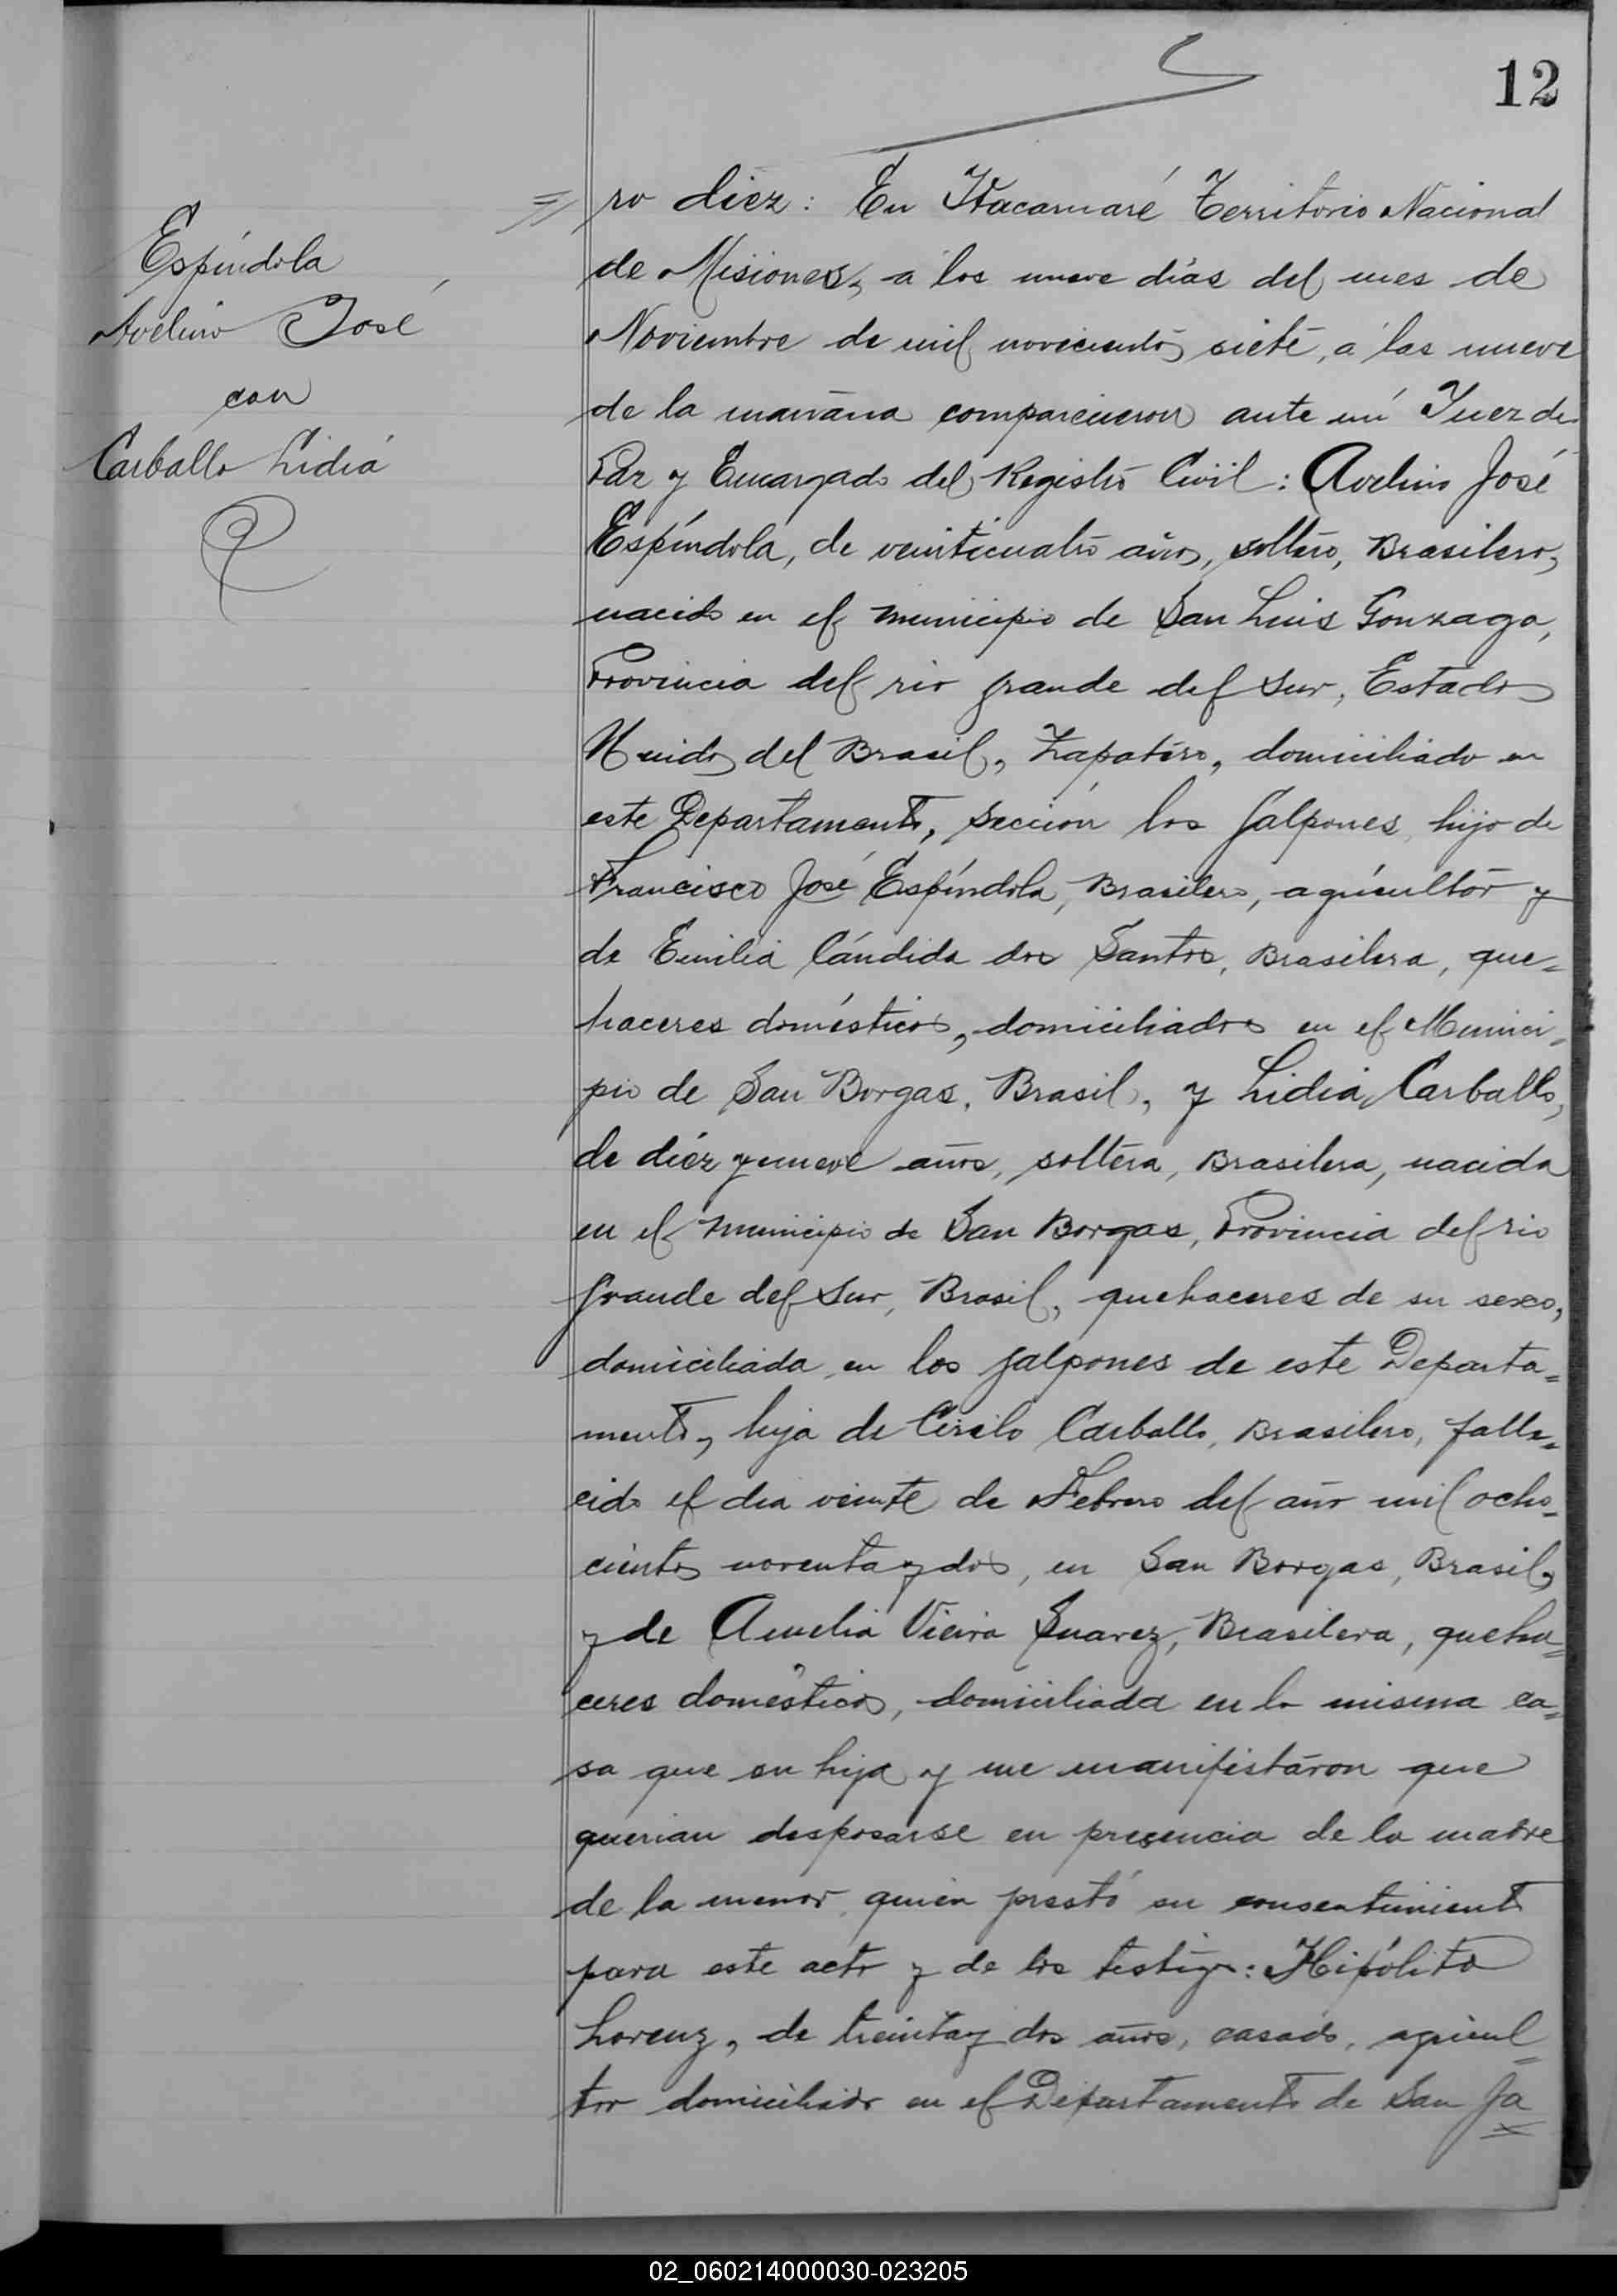 12
Espíndola
Avelino José
con
Carballo Lidia
ro diez: En Itacarnaré Territorio Nacional
de Misiones, a los nueve días del mes de
Noviembre de mil novecientos siete, a las nueve
de la mañana comparecieron ante mí Juez de
Paz y Encargado del Registro Civil: Avelino José
Espíndola, de veinticuatro años, soltero, Brasilero,
nacido en el municipio de San Luis Gonzaga,
Provincia del rio grande del Sur, Estados
Unidos del Brasil, Zapatero, domiciliado en
este Departamento, sección los Galpones, hijo de
Francisco José Espíndola, Brasilero, agricultor y
de Emilia Cándida dos Santos, Brasilera, que=
haceres domésticos, domiciliados en el Munici=
pio de San Borgas, Brasil, y Lidia Carballo,
de diéz y nueve años, soltera, Brasilera, nacida
en el municipio de San Borgas, Provincia del rio
Grande del Sur, Brasil, quehaceres de su sexo,
domiciliada en los galpones de este Departa=
mento, hija de Cirilo Carballo, Brasilero, falle=
cido el dia veinte de Febrero del año mil ocho=
cientos noventa y dos, en San Borgas, Brasil,
y de Amelia Vieira Suarez, Brasilera, queha=
ceres domésticos, domiciliada en la misma ca=
sa que su hija y me manifestáron que
querian desposarse en presencia de la madre
de la menor, quien prestó su consentimiento
para este acto y de los testigos: Hipólito
Lorenz, de treinta y dos años, casado, agricul=
tor domiciliado en el Departamento de San Ja
02_060214000030-023205